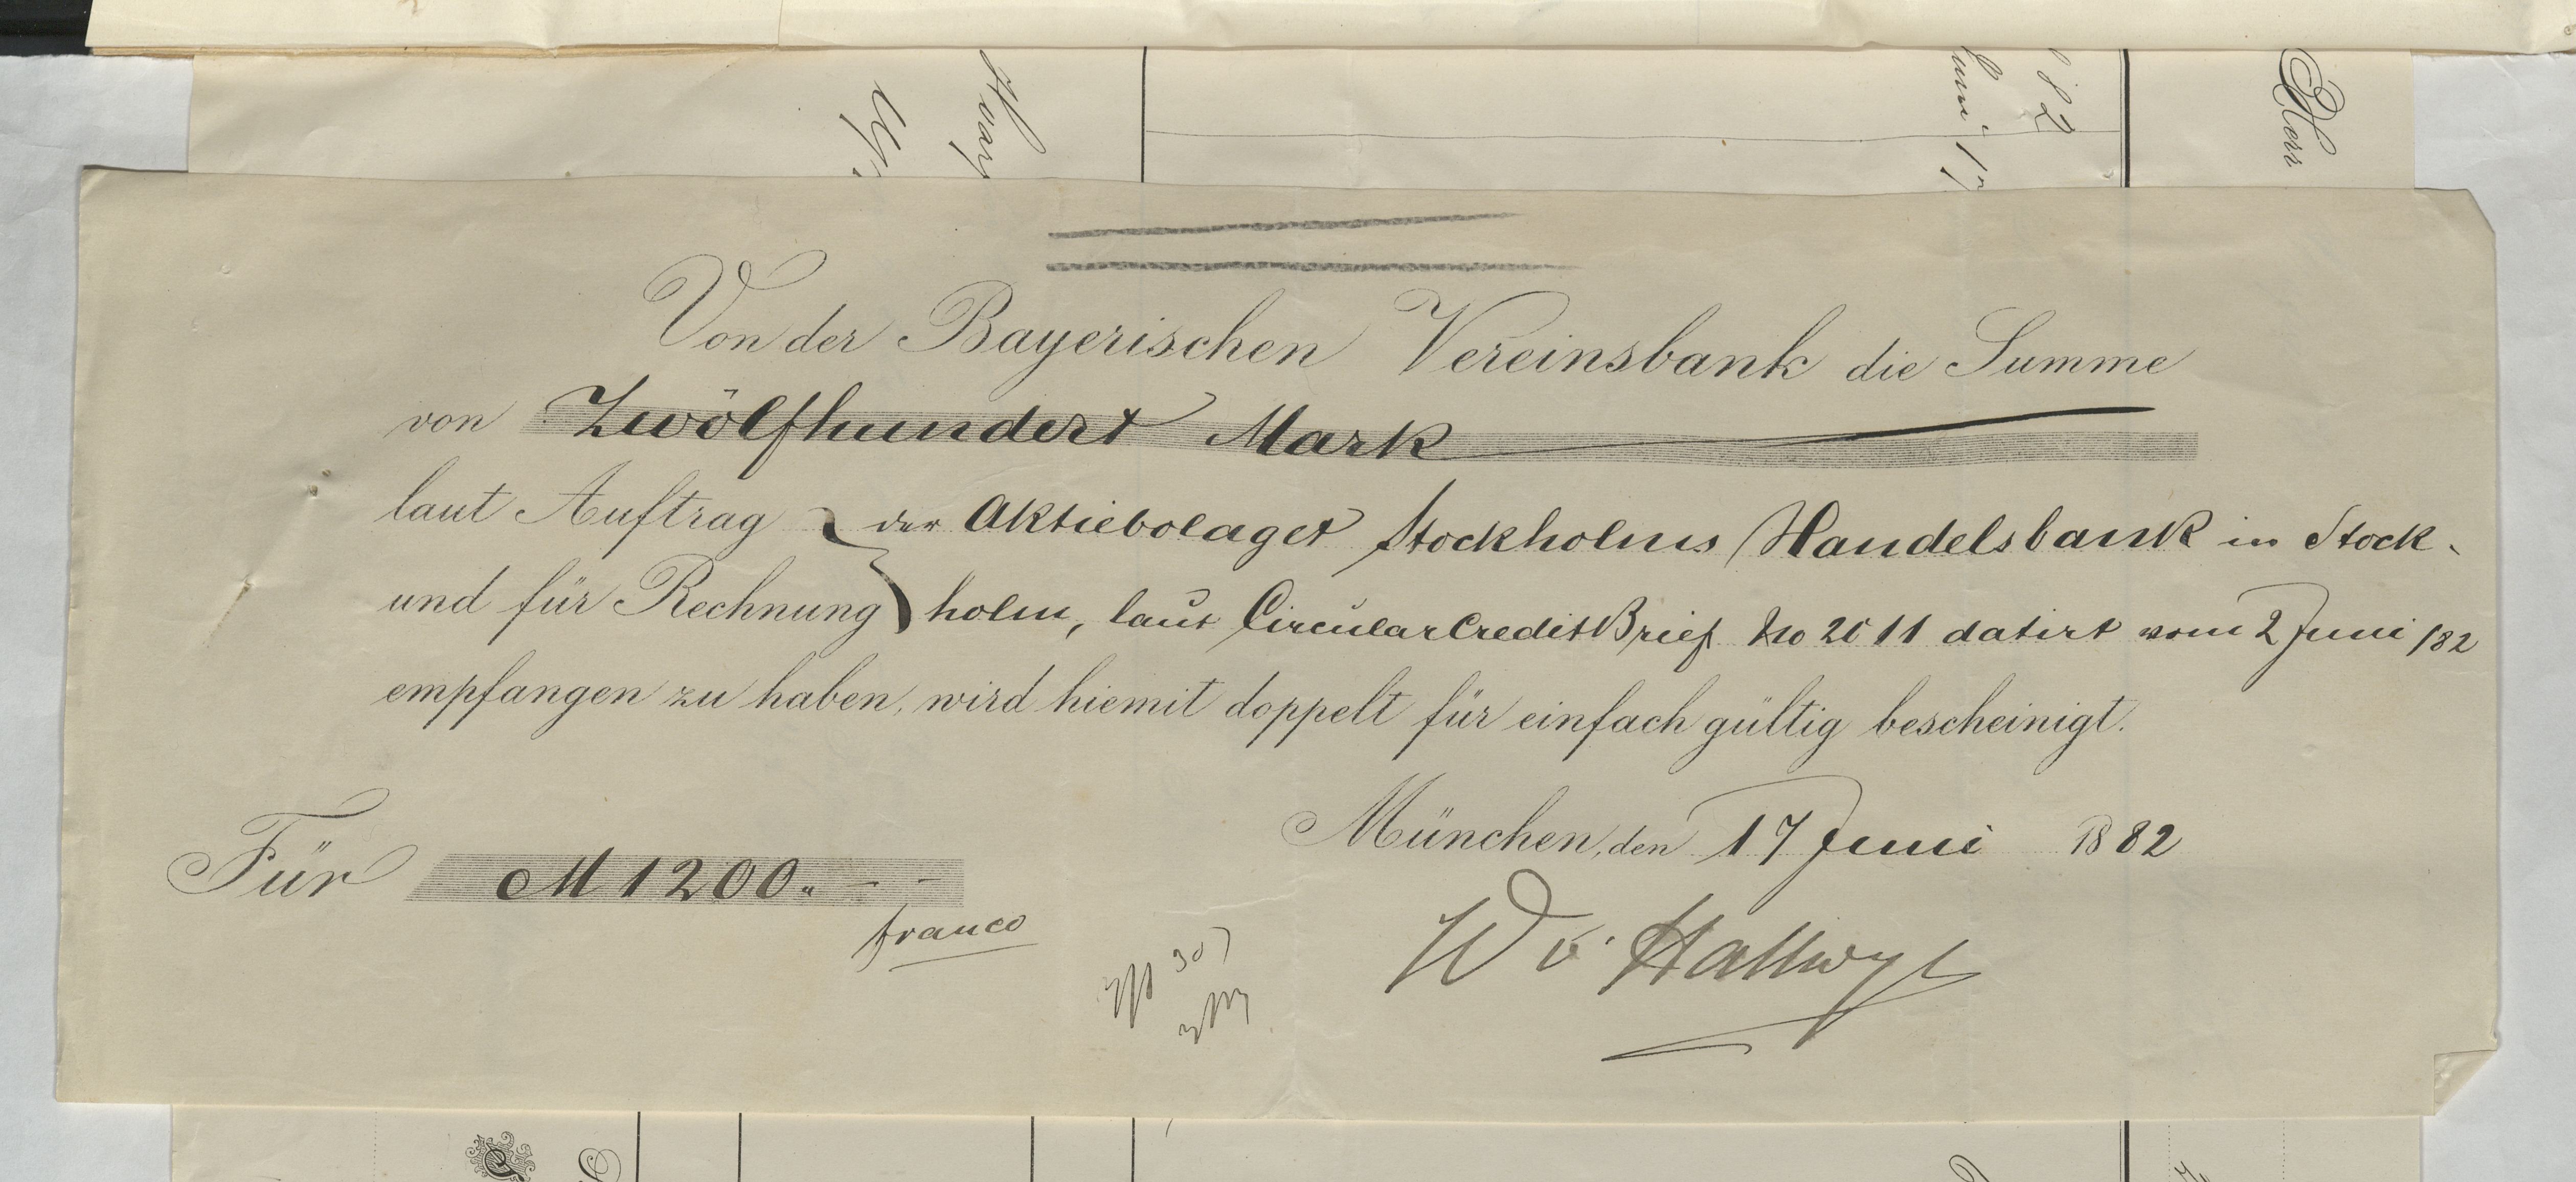 Herr
82
Von der Bayerischen Vereinsbank die Summe
von Zwölfhundert Mark
laut Auftrag } der Aktiebolaget Stockholms Handelsbank in Stock-
und für Rechnung } holm, laut CircularCreditBrief No 2011 datirt vom 2 Juni /82
empfangen zu haben, wird hiemit doppelt für einfach gültig bescheinigt.
München, den 17 Juni 1882
Für M 1200.. - -
franco
W v. Hallwyl
307